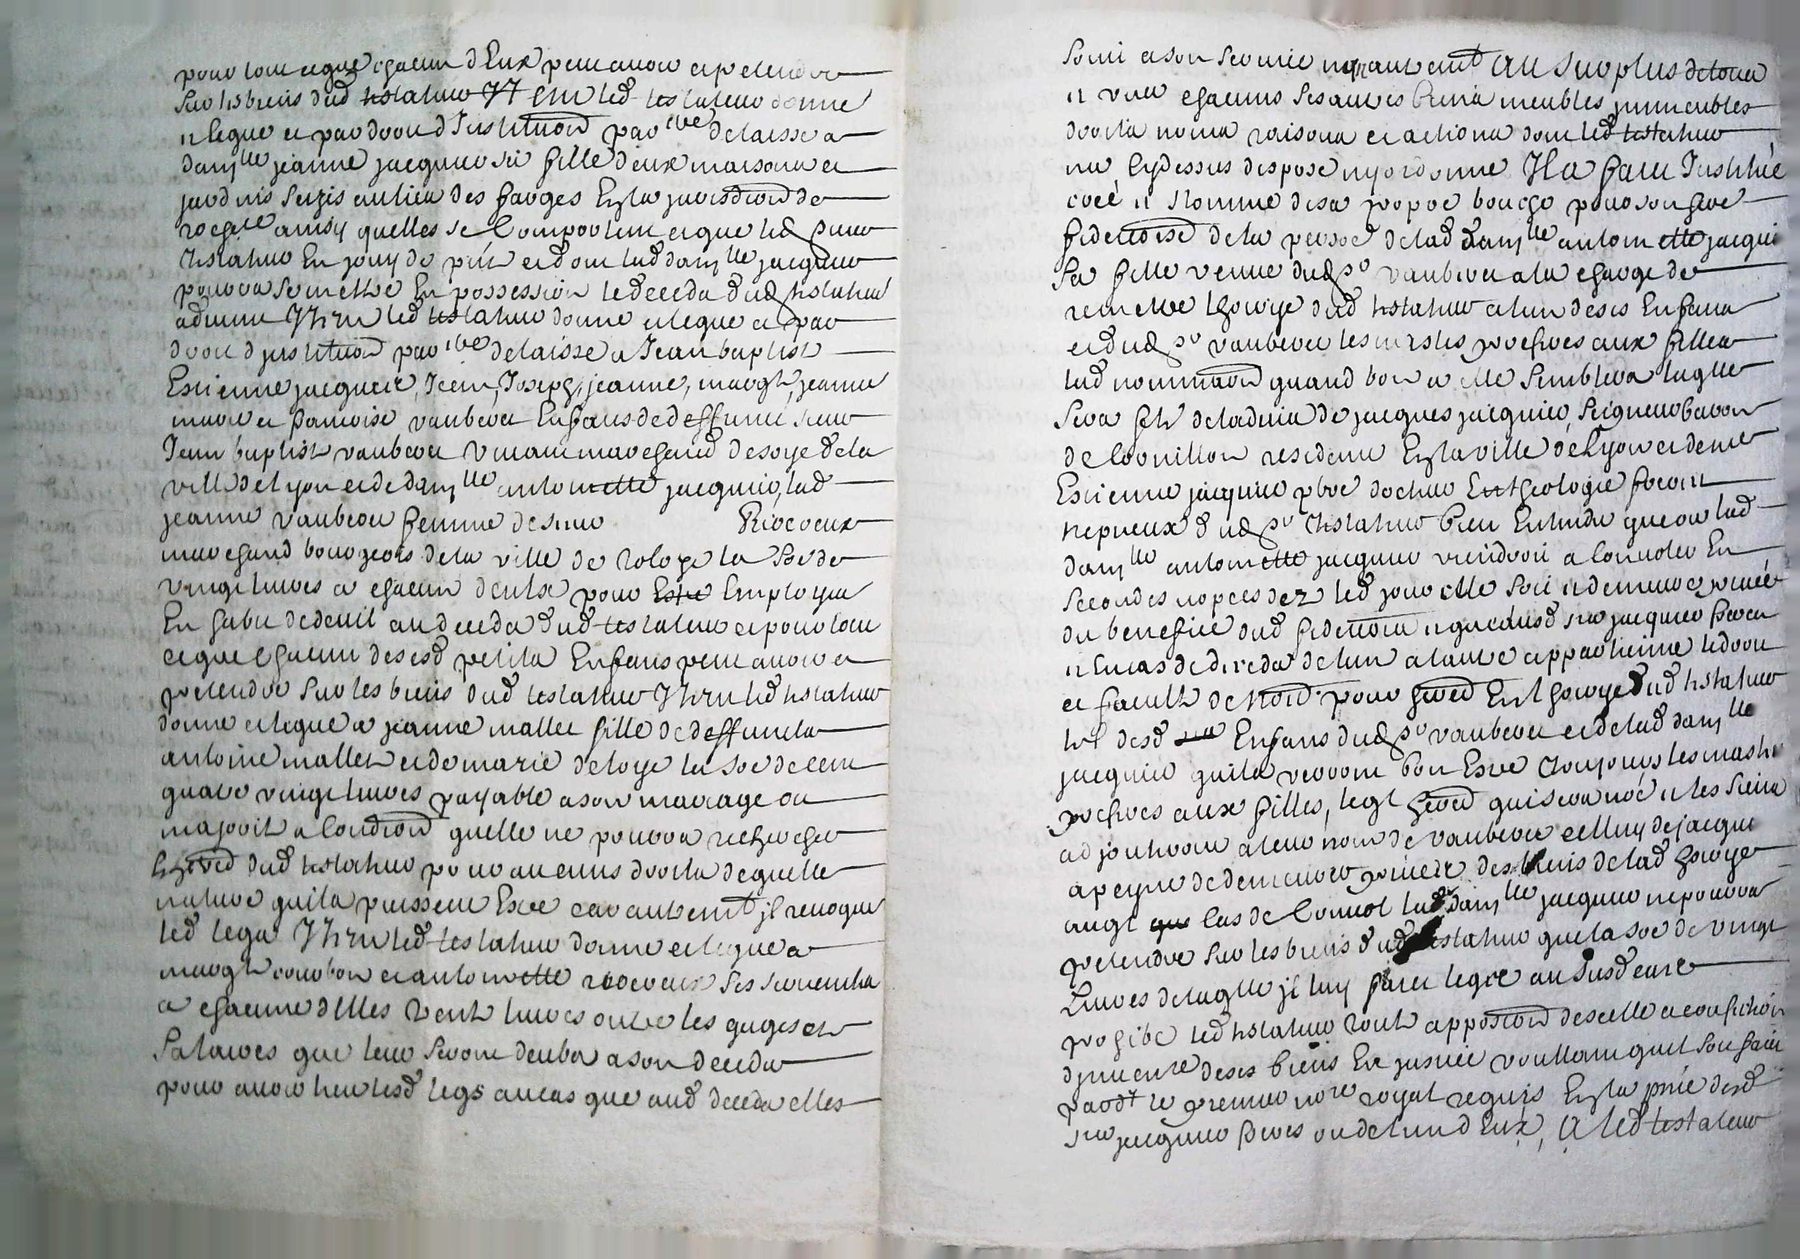 pour tout ce que chacun d'Eux peut avoir et pretendre
sur les biens dud testateur Item led testateur donne
et legue et par droit d'Institution par^lre delaisse a
dam^lle jeanne jacquier sa fille deux maisons et
jardins sizis au lieu des farges En la jurisdiction de
roch^lle ainsy quelles se Comportent et que led sieur
testateur En jouy de p^nt et dont lad dam^lle jacquier
pourra se mettre En possession le deceds dud testateur
advenu Item led testateur donne et legue et par
droit d'justitution par^lre delaisse a Jean baptist
Estienne jacquier, Jean, Joseph, jeanne, margte, jeanne
marie et francoise vanberct Enfans de deffunt sieur
Jean baptist vanberct vivant marchand de soye de la
ville de lyon et de dam^lle antoinette jacquier, lad
jeanne vanberct femme de sieur Riverieux
marchand bourgeois de la ville de la so^e de
vingt livres a chacun d'entx pour Estre Employes
En habit de deuil au deceds dud testateur et pour tout
ce que chacun desesd petits Enfans peut avoir et
pretendre sur les biens dud testateur Item led testateur
donne et legue a jeanne mallet fille de deffuncts
antoine mallet et de marie deloye la soe de cent
quatre vingt livres payable a son mariage ou
majorite a condition quelle ne pourra rechercher
lheritier dud testateur pour aucuns droits de quelle
nature quils puissent Estre car autremt jl revoque
led legs Item led testateur donne et legue a
margte courbon et antoinette ses servantes
a chacune d'Elles trente livres outre les gages et
salaires que leur seront deubs a son deceds
pour avoir lieu lesd legs au cas que aud deceds elles
soint a son service non autremt Au surplus de tous
et vns chacuns ses autres biens meubles jmmeubles
droits noms raisons et actions dont led testateur
na Cydessus dispose ny ordonne Il a fait Institué
créé et Nomme de sa propre bouche pour son hre
fidetiere de la person de lad dam^lle antoinette jacquier
sa fille veuve dud sr vanberct a la charge de
remettre lhoirye dud testateur a lun de ses Enfans
et dud sr vanberct les masles proferes aux filles
lad nommation quand bon a elle semblera laqlle
sera fte de ladvis de jacques jacquier, seigneur baron
de Cornillon resident En la ville de Lyon et de me
Estienne jacquier pbre docteur En theologie freres
nepveux dud sr testateur bien Entendu que ou lad
dam^lle antoinette jacquier viendroit a convoler En
secondes nopces dez led jour elle soit et demeure privée
du benefice dud et que ausd srs jacquier freres
et En cas de deceds de lun a lautre appartienne le droit
et faculte de pour heritier En lhoirye dud testateur
lun desd Enfans dud sr vanberct et de lad dam^lle
jacquier quils verront bon Estre tousjours les masles
proferes aux filles, leql heritier qui sera noé et les siens
adjouteront a leur nom de vanberct celluy de jacquier
a peyne de demeurer privéz des biens de lad hoirye
auql cas de Convol lad dam^lle jacquier ne pourra
pretendre sur les biens dud testateur que la soe de vingt
livres de laqlle jl luy fait legat au susd cas
prohibe led testateur toute apposition de scelle et confection
djnventre de ses biens En justice voullant quil soit fait
par dt le premier nore royal requis En la pnce desd
srs jacquier freres ou de lun d'Eux, A led testateur